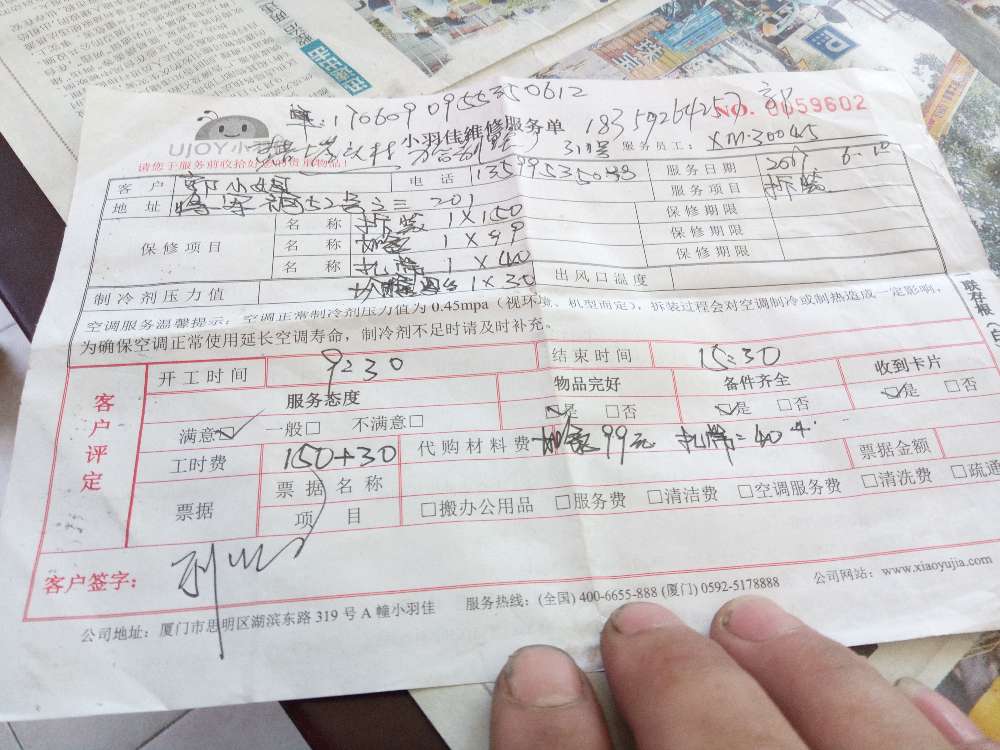 单:170609095535061２
18359264257 郭 NO. 0059602
UJOY小 小羽佳维修服务单
服务员工: XM-30045
请您于服务前收拾好
客户 电话 13599535043 服务日期 2017 6.10
服务项目 拆装
地址 52号之三 201 保修期限
保修项目 名称 拆装 1×150 保修期限
名称 加氨 1×99 保修期限
名称 扎带 1×40
1×30 出风口温度
制冷剂压力值
空调服务温馨提示:空调正常制冷剂压力值为0.45mpa(视环境、机型而定),拆装过程会对空调制冷或制热造成一定影响,
为确保空调正常使用延长空调寿命,制冷剂不足时请及时补充。
客户评定
开工时间 9:30 结束时间 15:30
服务态度 物品完好 备件齐全 收到卡片
满意☑ 一般□ 不满意□ ☑是 □否 ☑是 □否 ☑是 □否
工时费 150+30 代购材料费 99元 扎带=40 票据金额
票据 票据名称
项目 □搬办公用品 □服务费 □清洁费 □空调服务费 □清洗费 □疏通
客户签字:
公司地址:厦门市思明区湖滨东路319号A幢小羽佳 服务热线:(全国)400-6655-888 (厦门) 0592-5178888 公司网站:www.xiaoyujia.com